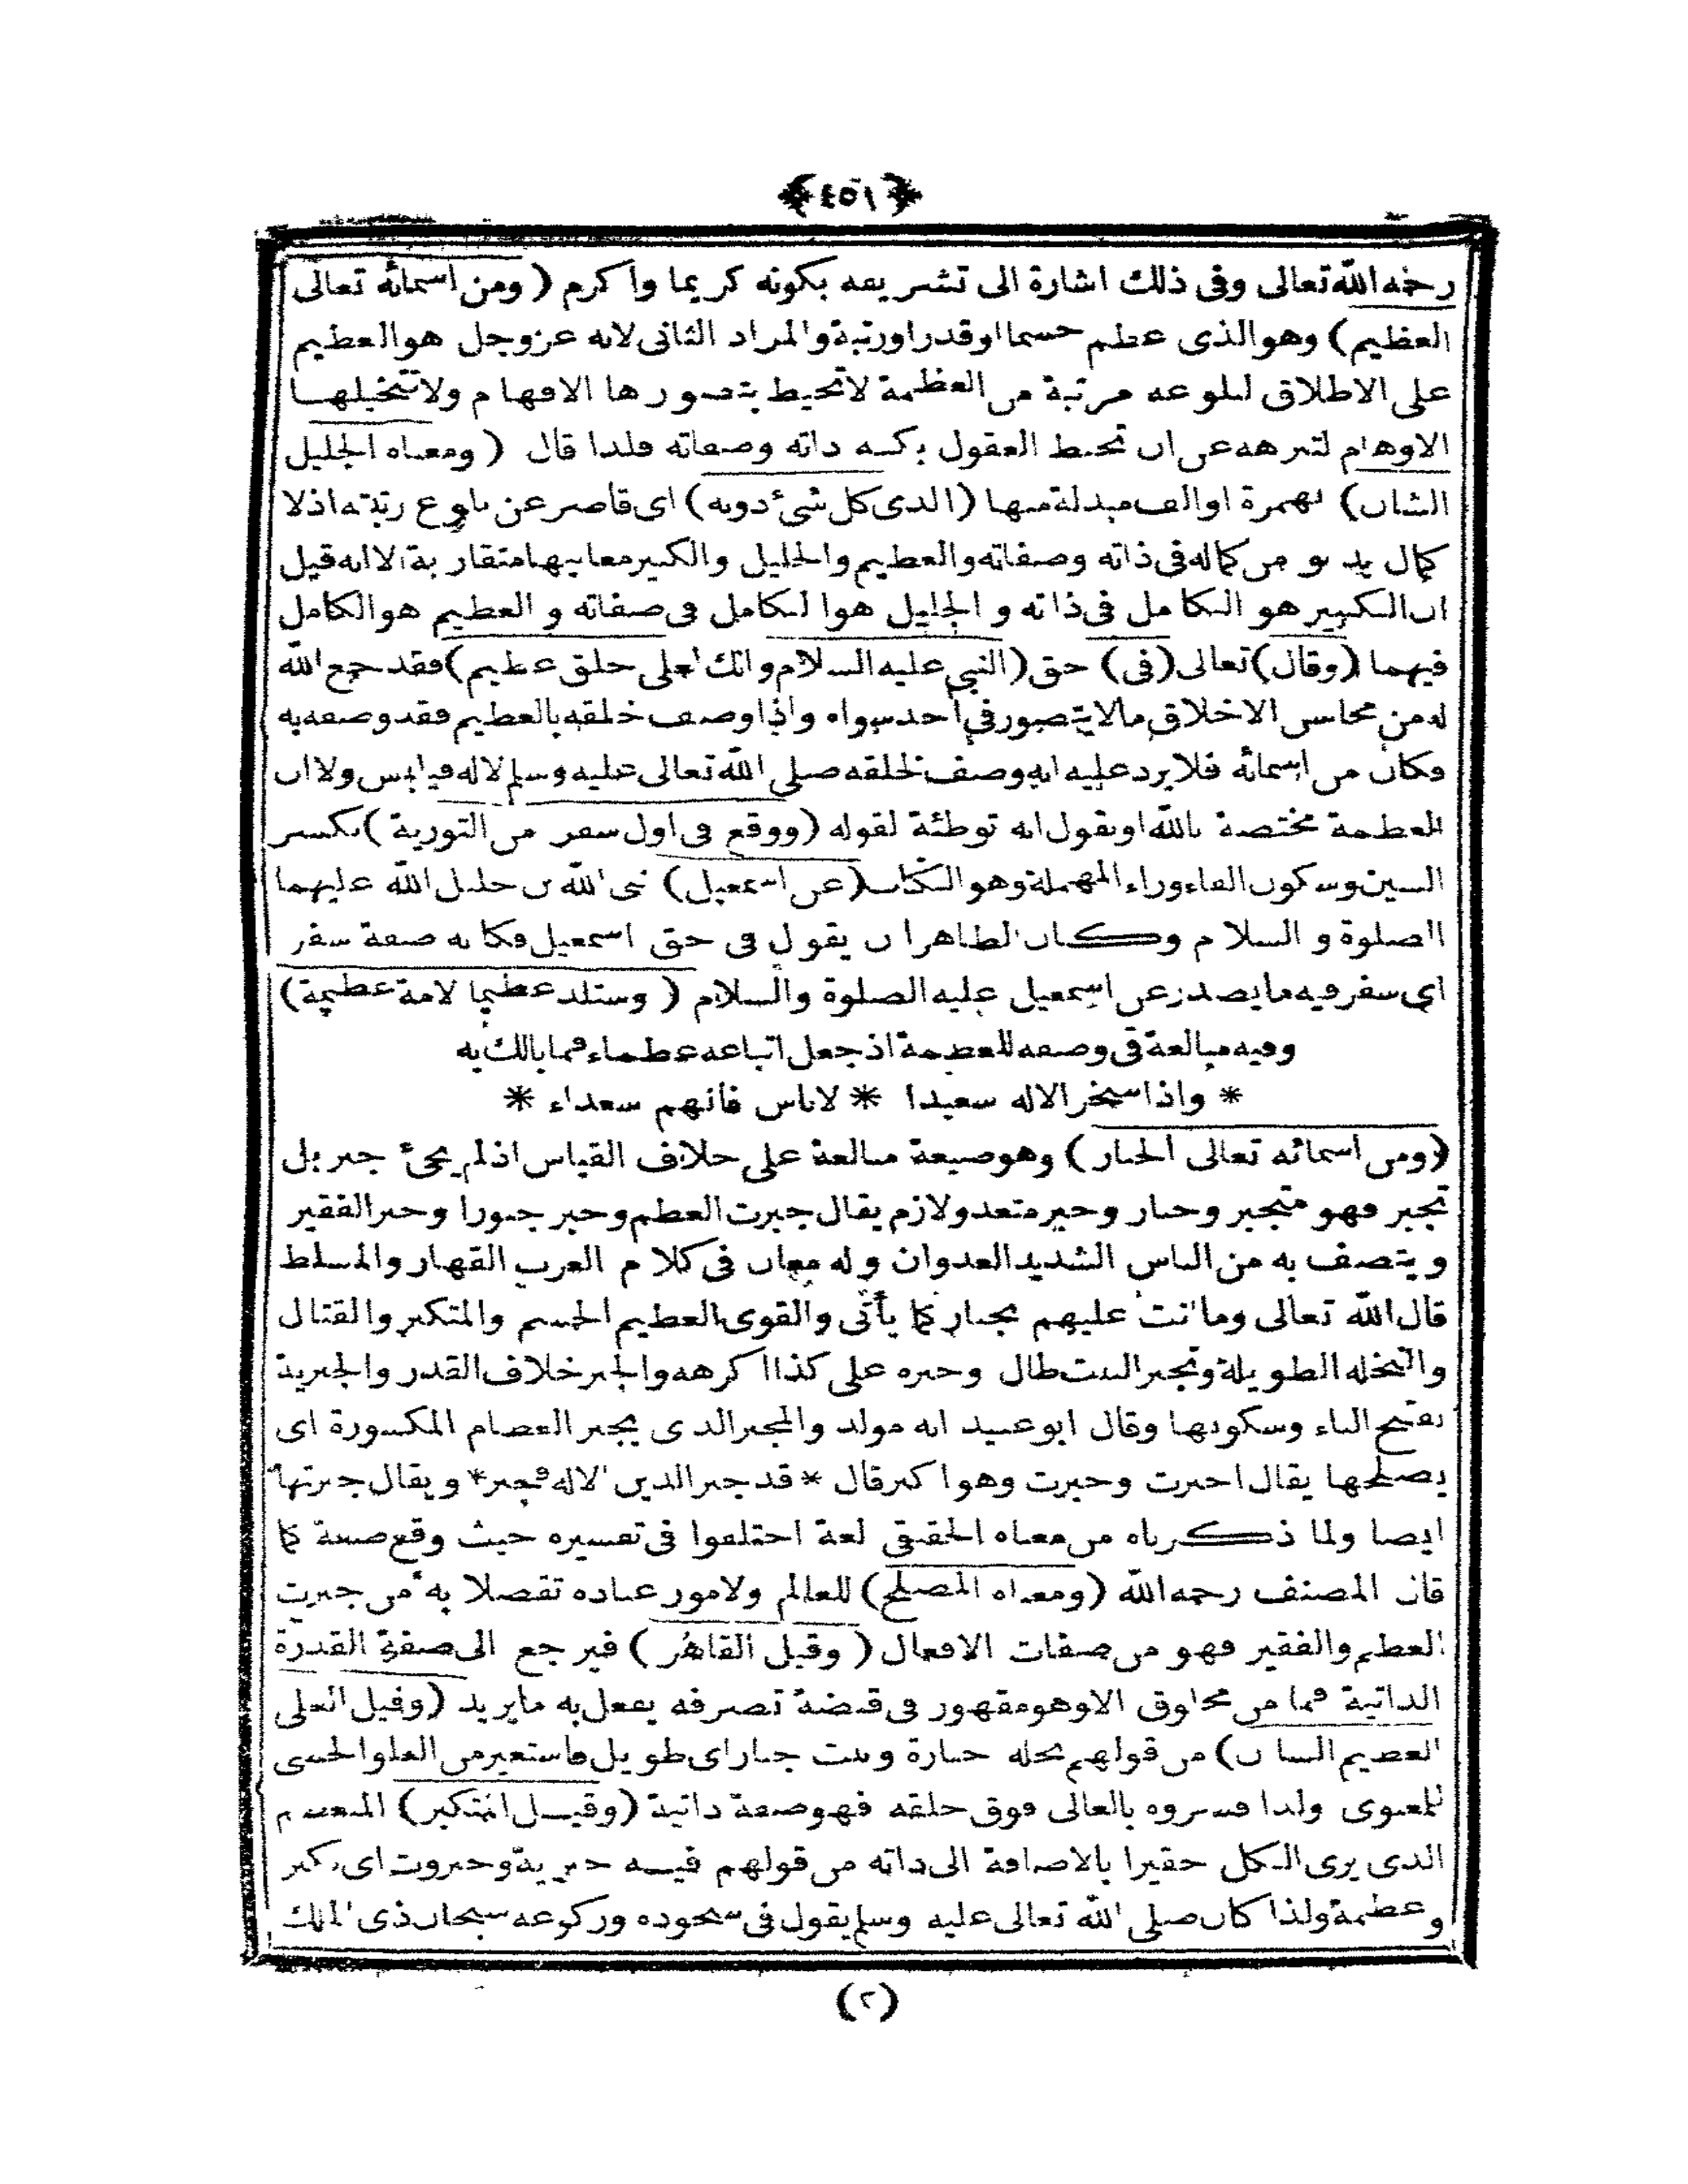 ﴿٤٥١﴾
رحمه الله تعالى وفى ذلك اشارة الى تشريعه بكونه كريما واكرم (ومن اسمائه تعالى
العظيم) وهو الذى عظم جسما او قدرا ورتبة والمراد الثانى لانه عز وجل هو العظيم
على الاطلاق لبلوغه مرتبة من العظمة لا تحيط بتصورها الافهام ولا تتخيلها
الاوهام لتنزهه عن ان تحيط العقول بكنه ذاته وصفاته فلذا قال (ومعناه الجليل
الشان) بهمزة او الف مبدلة منها (الذى كل شئ دونه) اى قاصر عن بلوغ رتبته اذ لا
كمال يدنو من كماله فى ذاته وصفاته والعظيم والجليل والكبير معانيها متقاربة الا انه قيل
ان الكبير هو الكامل فى ذاته والجليل هو الكامل فى صفاته والعظيم هو الكامل
فيهما (وقال) تعالى (فى) حق (النبى عليه السلام وانك لعلى خلق عظيم) فقد جمع الله
له من محاسن الاخلاق ما لا يتصور فى احد سواه واذا وصف خلقه بالعظيم فقد وصفه به
فكان من اسمائه فلا يرد عليه انه وصف لخلقه صلى الله تعالى عليه وسلم لا له ولا ان
العظمة مختصة بالله او نقول انه توطئة لقوله (ووقع فى اول سفر من التورية) بكسر
السين وسكون الفاء وراء المهملة وهو الكتاب (عن اسمعيل) نبى الله بن خليل الله عليهما
الصلوة والسلام وكان الظاهر ان يقول فى حق اسمعيل فكانه صفة سفر
اى سفر فيه ما يصدر عن اسمعيل عليه الصلوة والسلام (وستلد عظيما لامة عظيمة)
وفيه مبالغة فى وصفه للعظمة اذ جعل اتباعه عظماء فما بالك به
* واذا سخر الاله سعيدا * لاناس فانهم سعداء *
(ومن اسمائه تعالى الجبار) وهو صيغة مبالغة على خلاف القياس اذ لم يجئ جبر بل
تجبر فهو متجبر وجبار وجبر متعد ولازم يقال جبرت العظم وجبر جبورا وجبر الفقير
ويتصف به من الناس الشديد العدوان وله معان فى كلام العرب القهار والمسلط
قال الله تعالى وما انت عليهم بجبار كما يأتى والقوى العظيم الجسم والمتكبر والقتال
والنخلة الطويلة وتجبر النبت طال وجبره على كذا اكرهه والجبر خلاف القدر والجبرية
بفتح الباء وسكونها وقال ابو عبيد انه مولد والمجبر الذى يجبر العظام المكسورة اى
يصلحها يقال اجبرت وجبرت وهو اكبر قال * قد جبر الدين الاله فجبر * ويقال جبرتها
ايضا ولما ذكرناه من معناه الحقيقى لغة اختلفوا فى تفسيره حيث وقع صفة كما
قال المصنف رحمه الله (ومعناه المصلح) للعالم ولامور عباده تفضلا به من جبرت
العظم والفقير فهو من صفات الافعال (وقيل القاهر) فيرجع الى صفة القدرة
الذاتية فما من مخلوق الا وهو مقهور فى قبضة تصرفه يفعل به ما يريد (وقيل العلى
العظيم الشان) من قولهم نخلة جبارة ونبت جبار اى طويل فاستعير من العلو الحسى
للمعنوى ولذا فسروه بالعالى فوق خلقه فهو صفة ذاتية (وقيل المتكبر) المتعظم
الذى يرى الكل حقيرا بالاضافة الى ذاته من قولهم فيه جبرية وجبروت اى تكبر
وعظمة ولذا كان صلى الله تعالى عليه وسلم يقول فى سجوده وركوعه سبحان ذى الملك
(٢)